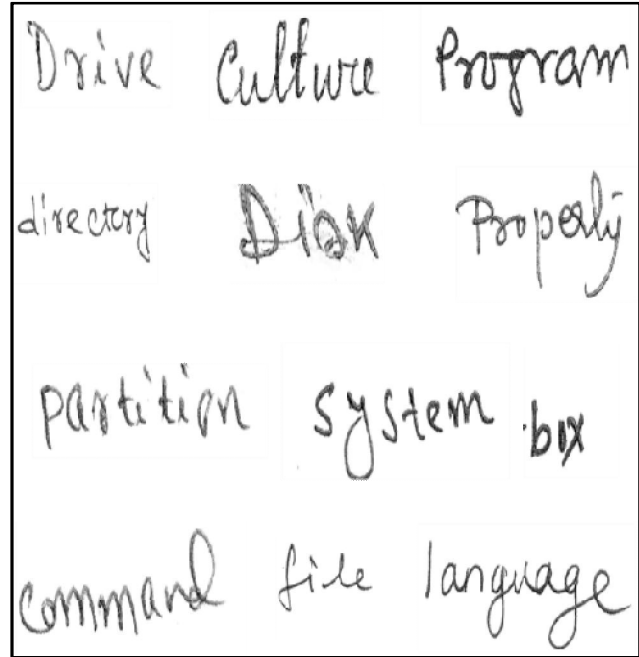 Drive Culture Program
directory Disk Properly
partition system box
command file language